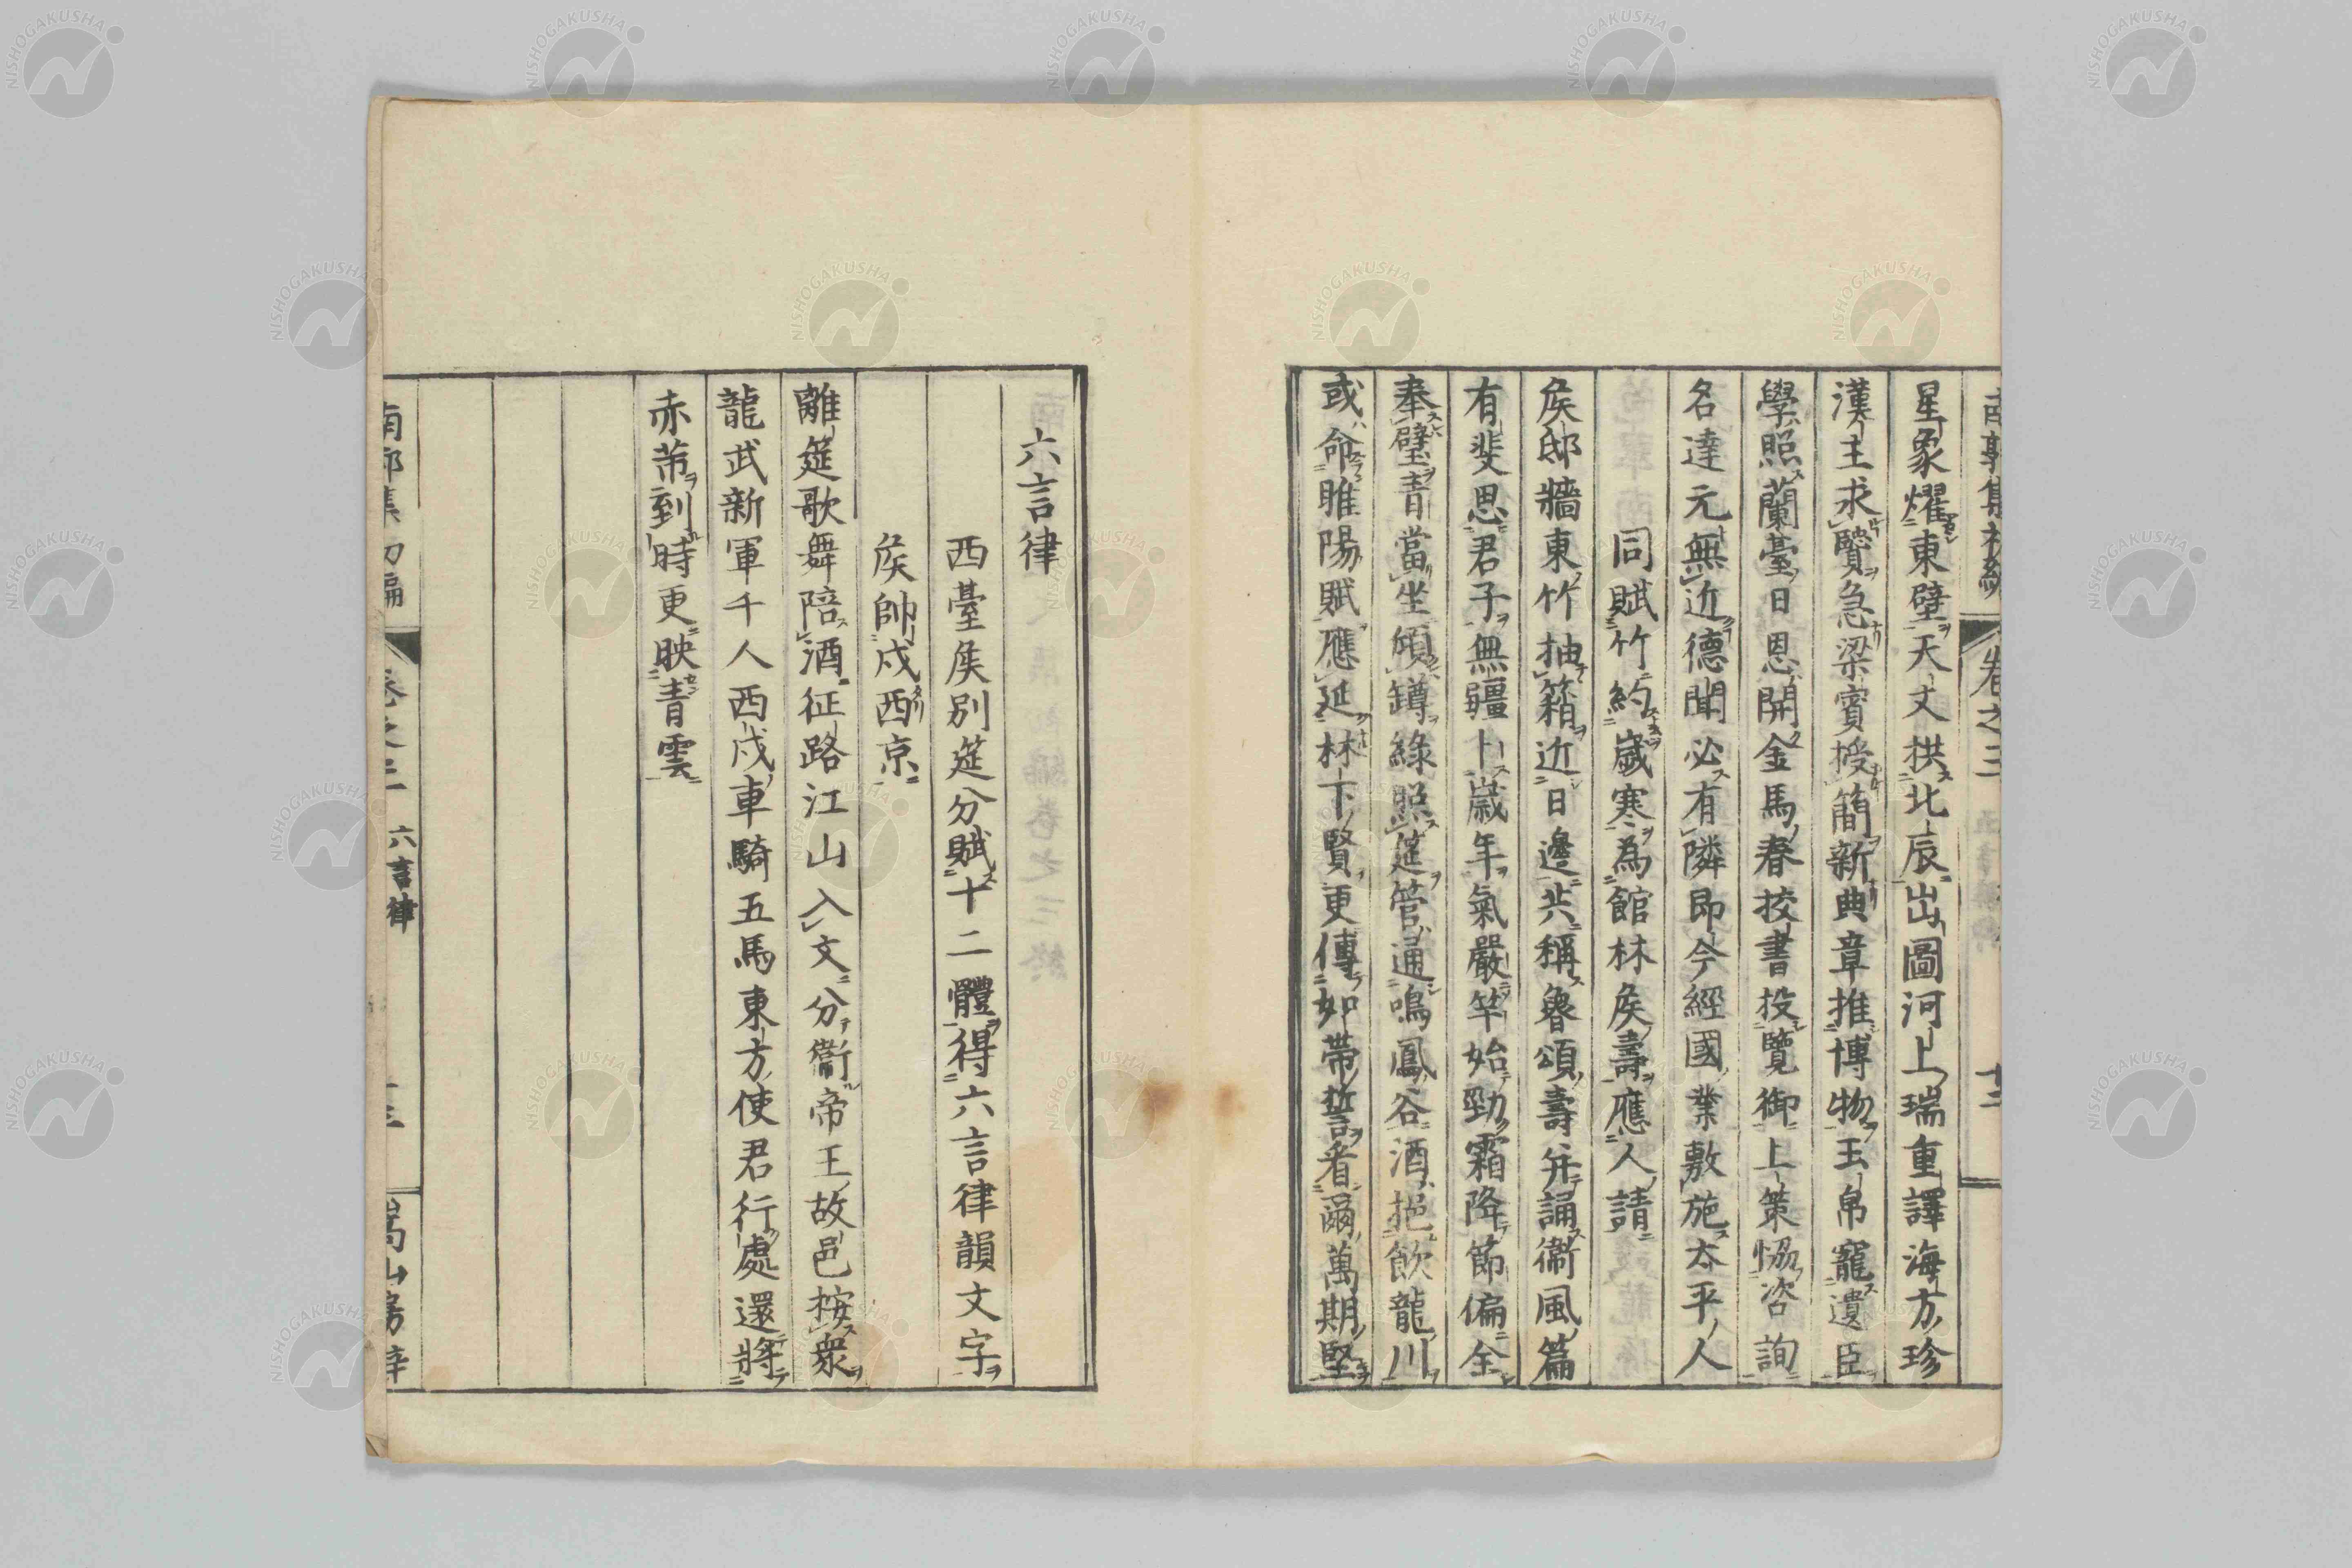 南郭集初編 卷之三 十二
星象燿東壁天文拱北辰出圖河上瑞重譯海方珍
漢主求賢急梁賓授簡新典章推博物玉帛寵遺臣
學照蘭臺日恩開金馬春挍書投覽御上策恊咨詢
名達元無近德聞必有隣即今經國業敷施太平人
同賦竹約歲寒為館林矦壽應人請
矦邸牆東竹抽籜近日邊共稱魯頌壽并誦衞風篇
有斐思君子無疆卜歲年氣嚴竿始勁霜降節偏全
奉璧青當坐傾罇綠照筵管通鳴鳳谷酒挹飲龍川
或命睢陽賦應延林下賢更傳如帶誓看爾萬期堅
六言律
西臺矦別筵分賦十二體得六言律韻文字
矦帥戍西京
離筵歌舞陪酒征路江山入文分衞帝王故邑按衆
龍武新軍千人西戍車騎五馬東方使君行處還將
赤芾到時更映青雲
南郭集初編 卷之三 六言律 十三 嵩山房梓
NISHOGAKUSHA